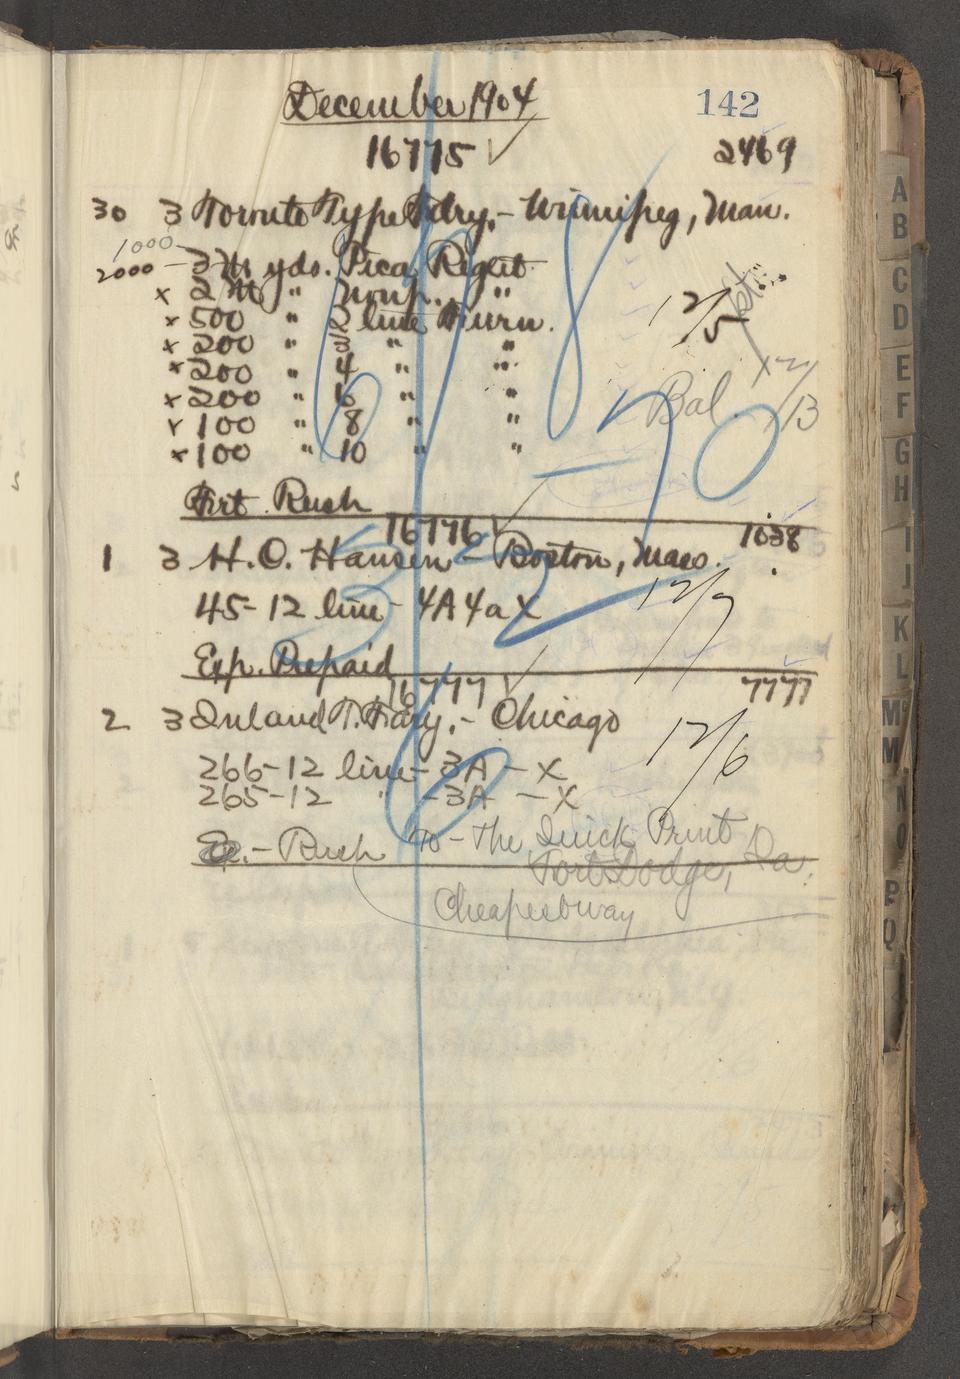 December 1904 142
16775 ✓ 2469
30 3 Toronto Type Fdry. - Winnipeg, Man.
1000
2000 - 3 M yds. Pica Reglet
x 2 M " Nonp. " 12/5 pt.
x 500 " 2 line Furn.
x 200 " 3 " "
x 200 " 4 " " 12/13
x 200 " 6 " " Bal.
x 100 " 8 " "
x 100 " 10 " "
Frt. Rush
16776 ✓ 1038
1 3 H. O. Hansen - Boston, Mass.
45-12 line - 4A 4a X 12/7
Exp. Prepaid
16777 ✓ 7777
2 3 Inland T. Fdry. - Chicago
266-12 line - 3A - X 12/6
265-12 " - 3A - X
- Rush To - The Quick Print
Fort Dodge, Ia.
Cheapest way
A
B
C
D
E
F
G
H
I
J
K
L
M
M
N
O
P
Q